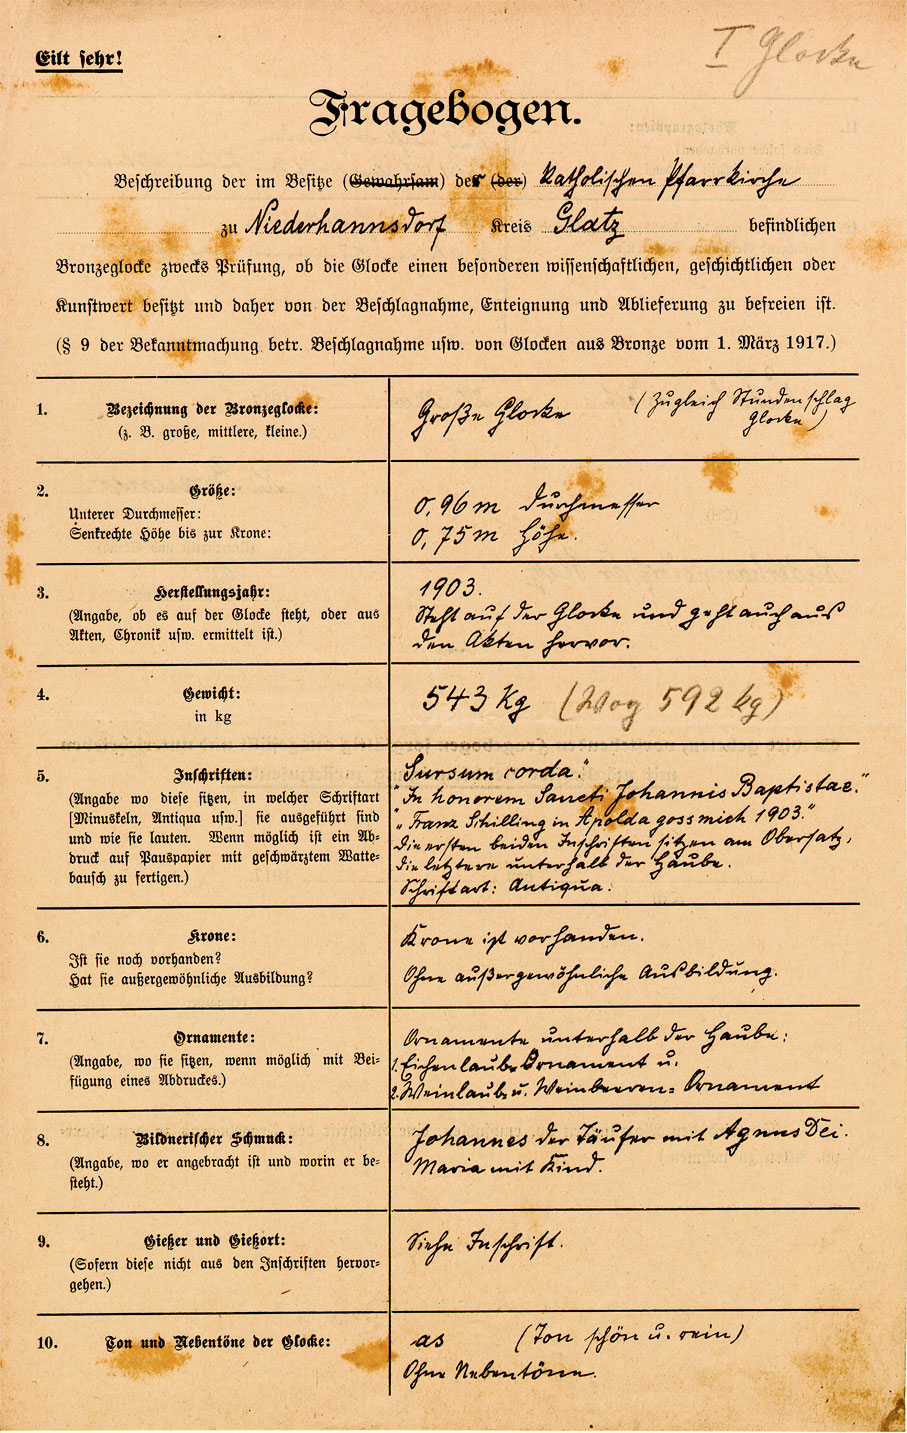 Eilt sehr!
I Glocke
Fragebogen.
Beschreibung der im Besitze (Gewahrsam) der (der) Katholischen Pfarrkirche
zu Niederhannsdorf Kreis Glatz befindlichen
Bronzeglocke zwecks Prüfung, ob die Glocke einen besonderen wissenschaftlichen, geschichtlichen oder
Kunstwert besitzt und daher von der Beschlagnahme, Enteignung und Ablieferung zu befreien ist.
(§ 9 der Bekanntmachung betr. Beschlagnahme usw. von Glocken aus Bronze vom 1. März 1917.)
1. Bezeichnung der Bronzeglocke:
(z. B. große, mittlere, kleine.)
Große Glocke (Zugleich Stundenschlag
Glocke)
2. Größe:
Unterer Durchmesser:
Senkrechte Höhe bis zur Krone:
0,96 m Durchmesser
0,75 m Höhe.
3. Herstellungsjahr:
(Angabe, ob es auf der Glocke steht, oder aus
Akten, Chronik usw. ermittelt ist.)
1903.
Steht auf der Glocke und geht auch aus
den Akten hervor.
4. Gewicht:
in kg
543 Kg (Wog 592 kg)
5. Inschriften:
(Angabe wo diese sitzen, in welcher Schriftart
[Minuskeln, Antiqua usw.] sie ausgeführt sind
und wie sie lauten. Wenn möglich ist ein Ab-
druck auf Pauspapier mit geschwärztem Watte-
bausch zu fertigen.)
"Sursum corda."
"In honorem Sancti Johannis Baptistae."
"Franz Schilling in Apolda goss mich 1903."
Die ersten beiden Inschriften sitzen am Obersatz,
die letztere unterhalb der Haube.
Schriftart: Antiqua.
6. Krone:
Ist sie noch vorhanden?
Hat sie außergewöhnliche Ausbildung?
Krone ist vorhanden.
Ohne außergewöhnliche Ausbildung.
7. Ornamente:
(Angabe, wo sie sitzen, wenn möglich mit Bei-
fügung eines Abdruckes.)
Ornamente unterhalb der Haube:
1. Eichenlaub=Ornament u.
2. Weinlaub= u. Weinbeeren= Ornament
8. Bildnerischer Schmuck:
(Angabe, wo er angebracht ist und worin er be-
steht.)
Johannes der Täufer mit Agnus Dei.
Maria mit Kind.
9. Gießer und Gießort:
(Sofern diese nicht aus den Inschriften hervor-
gehen.)
Siehe Inschrift.
10. Ton und Nebentöne der Glocke:
as (Ton schön u. rein)
Ohne Nebentöne.